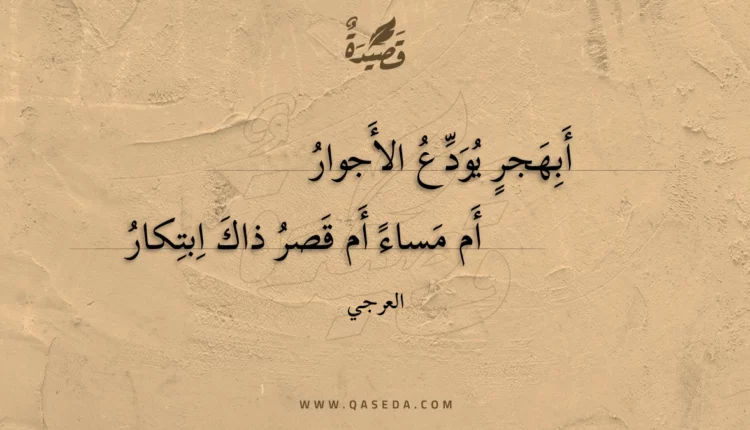 قَصِيدَةٌ
أَبِهَجرٍ يُوَدِّعُ الأَجوارُ
أَم مَساءً أَم قَصرُ ذاكَ اِبتِكارُ
العرجي
WWW.QASEDA.COM